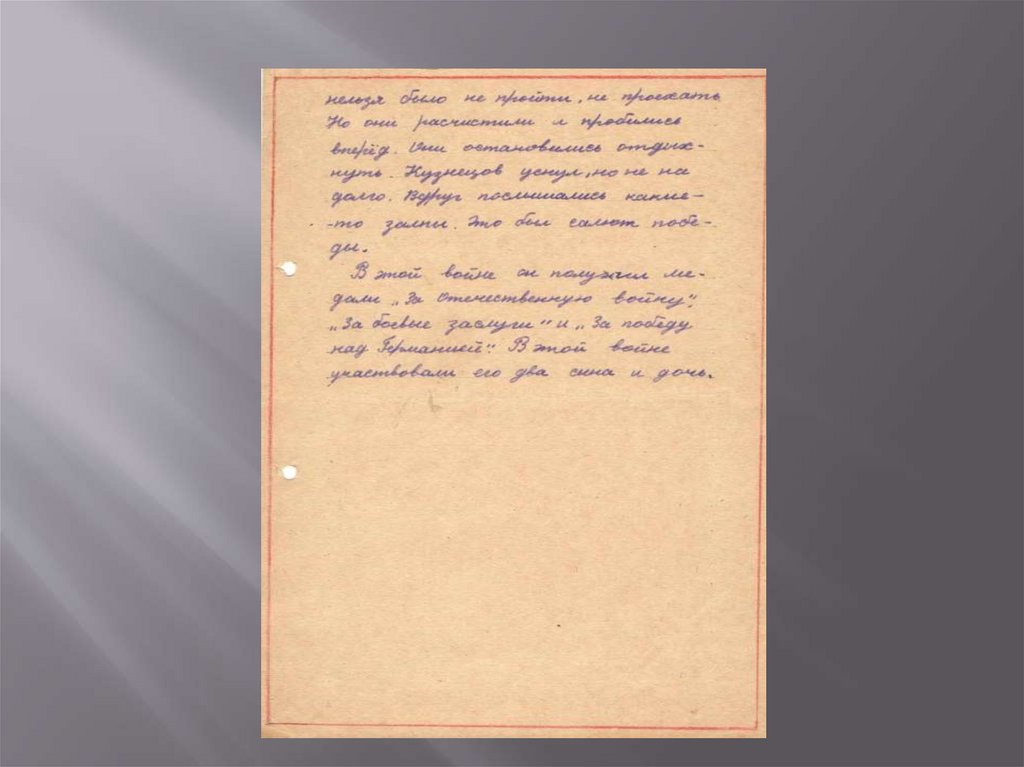 нельзя было не пройти, не проехать
Но они расчистили и пробились
вперёд. Они остановились отдых-
нуть. Кузнецов уснул, но не на
долго. Вдруг послышались какие-
-то залпы. Это был салют побе-
ды.
В этой войне он получил ме-
дали „За Отечественную войну",
„За боевые заслуги" и „За победу
над Германией". В этой войне
участвовали его два сына и дочь.